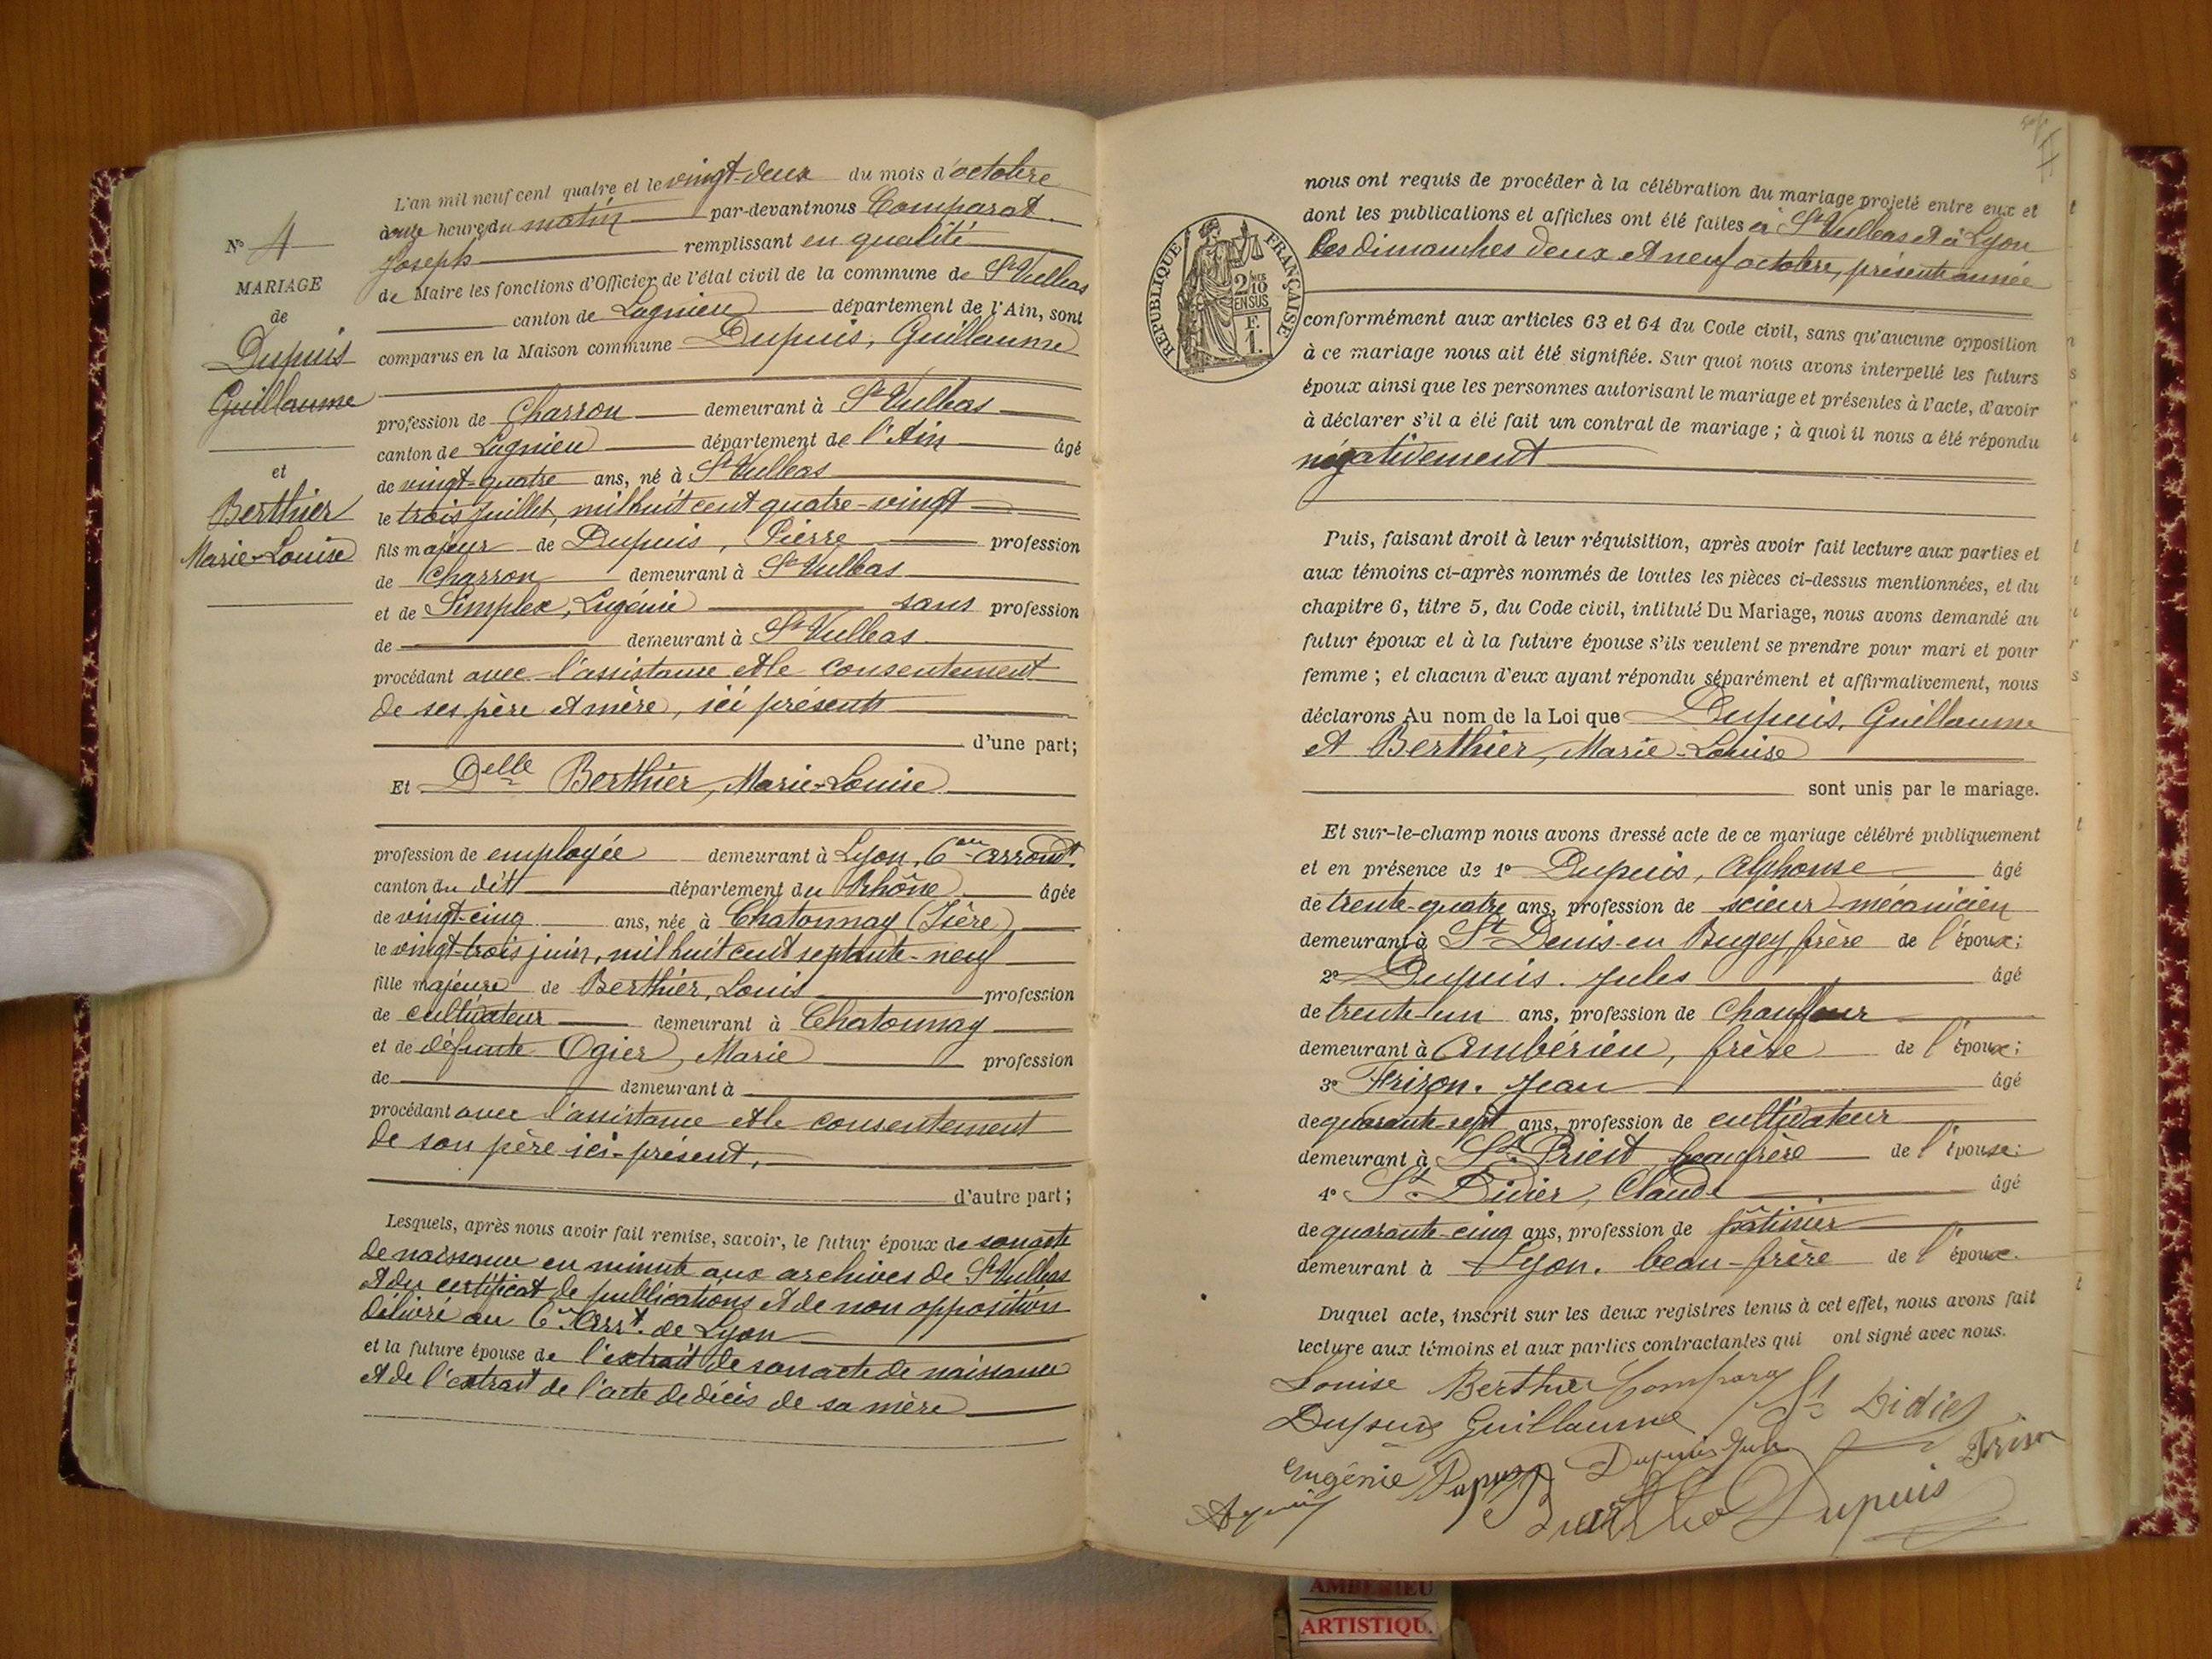 N° 4
MARIAGE
de
Dupuis
Guillaume
et
Berthier
Marie-Louise
L'an mil neuf cent quatre et le vingt-deux du mois d'octobre
heure du matin par-devant nous Comparat
Joseph remplissant en qualité
de Maire les fonctions d'Officier de l'état civil de la commune de St Vulbas
canton de Lagnieu département de l'Ain, sont
comparus en la Maison commune Dupuis, Guillaume
profession de Charron demeurant à St Vulbas
canton de Lagnieu département de l'Ain âgé
de vingt-quatre ans, né à St Vulbas
le trois juillet, mil huit cent quatre-vingt
fils majeur de Dupuis, Pierre profession
de Charron demeurant à St Vulbas
et de Simplex, Eugénie sans profession
de demeurant à St Vulbas
procédant avec l'assistance et le consentement
de ses père et mère, ici présents
d'une part;
Et Delle Berthier, Marie-Louise
profession de employée demeurant à Lyon, 6me arrondt.
canton du dit département du Rhône âgée
de vingt-cinq ans, née à Chatonnay (Isère)
le vingt-trois juin, mil huit cent septante-neuf
fille majeure de Berthier, Louis profession
de cultivateur demeurant à Chatonnay
et de défunte Ogier, Marie profession
de demeurant à
procédant avec l'assistance et le consentement
de son père ici-présent,
d'autre part;
Lesquels, après nous avoir fait remise, savoir, le futur époux de son acte
de naissance en minute aux archives de St Vulbas
et du certificat de publications et de non opposition
délivré au 6e Arrt. de Lyon
et la future épouse de l'extrait de son acte de naissance
et de l'extrait de l'acte de décès de sa mère
RÉPUBLIQUE FRANÇAISE
2/10
EN SUS
F.
1.
nous ont requis de procéder à la célébration du mariage projeté entre eux et
dont les publications et affiches ont été faites à St Vulbas et à Lyon
les dimanches deux et neuf octobre, présente année
conformément aux articles 63 et 64 du Code civil, sans qu'aucune opposition
à ce mariage nous ait été signifiée. Sur quoi nous avons interpellé les futurs
époux ainsi que les personnes autorisant le mariage et présentes à l'acte, d'avoir
à déclarer s'il a été fait un contrat de mariage ; à quoi il nous a été répondu
négativement
Puis, faisant droit à leur réquisition, après avoir fait lecture aux parties et
aux témoins ci-après nommés de toutes les pièces ci-dessus mentionnées, et du
chapitre 6, titre 5, du Code civil, intitulé Du Mariage, nous avons demandé au
futur époux et à la future épouse s'ils veulent se prendre pour mari et pour
femme ; et chacun d'eux ayant répondu séparément et affirmativement, nous
déclarons Au nom de la Loi que Dupuis, Guillaume
et Berthier, Marie-Louise
sont unis par le mariage.
Et sur-le-champ nous avons dressé acte de ce mariage célébré publiquement
et en présence de 1° Dupuis, Alphonse âgé
de trente-quatre ans, profession de scieur mécanicien
demeurant à St Denis-en Bugey frère de l'époux;
2° Dupuis. Jules âgé
de trente-un ans, profession de Chauffeur
demeurant à Ambérieu, frère de l'époux;
3° Frizon. Jean âgé
de quarante-sept ans, profession de cultivateur
demeurant à St. Priest beau frère de l'épouse;
4° St. Didier, Claude âgé
de quarante-cinq ans, profession de pâtissier
demeurant à Lyon. beau-frère de l'époux.
Duquel acte, inscrit sur les deux registres tenus à cet effet, nous avons fait
lecture aux témoins et aux parties contractantes qui ont signé avec nous.
Louise Berthier Comparat St Didier
Dupuis Guillaume
Eugénie Dupuis Jules
Dupuis
AMBERIEU
ARTISTIQU